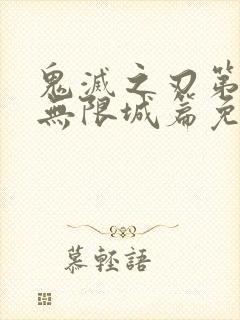 鬼滅之刃第
無限城篇免
慕輕語